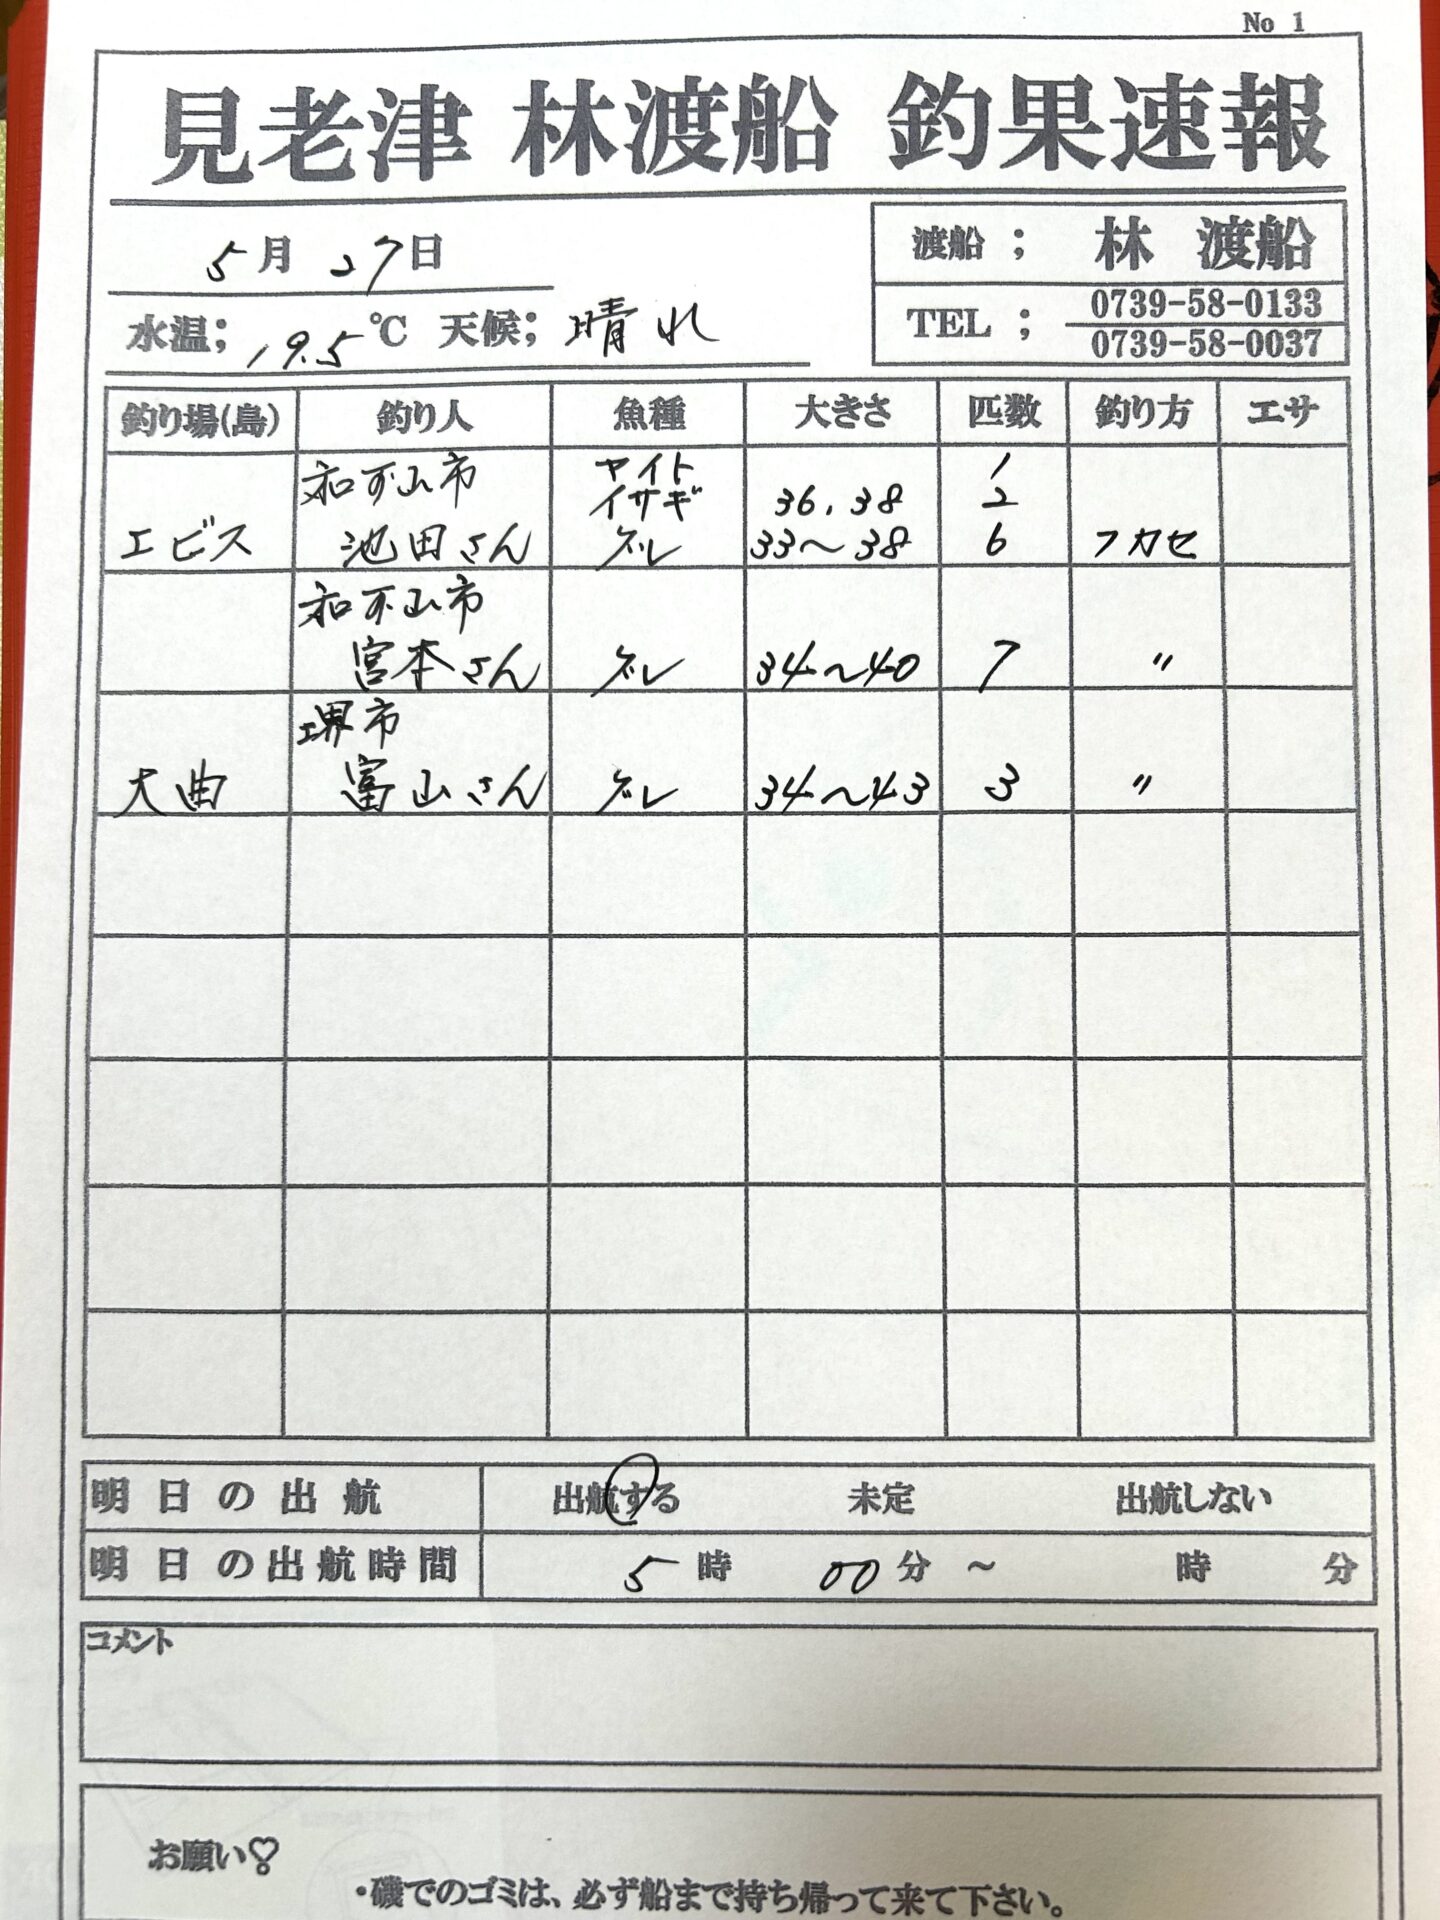 No 1
見老津 林渡船 釣果速報
5月 27日
渡船 ; 林 渡船
水温; 19.5℃ 天候; 晴れ
TEL ; 0739-58-0133
0739-58-0037
釣り場(島) 釣り人 魚種 大きさ 匹数 釣り方 エサ
和歌山市 ヤイト 1
イサギ 36.38 2
エビス 池田さん グレ 33〜38 6 フカセ
和歌山市
宮本さん グレ 34〜40 7 〃
堺市
大曲 富山さん グレ 34〜43 3 〃
明日の出航 出航する 未定 出航しない
明日の出航時間 5時 00分 ~ 時 分
コメント
お願い♡
・磯でのゴミは、必ず船まで持ち帰って来て下さい。